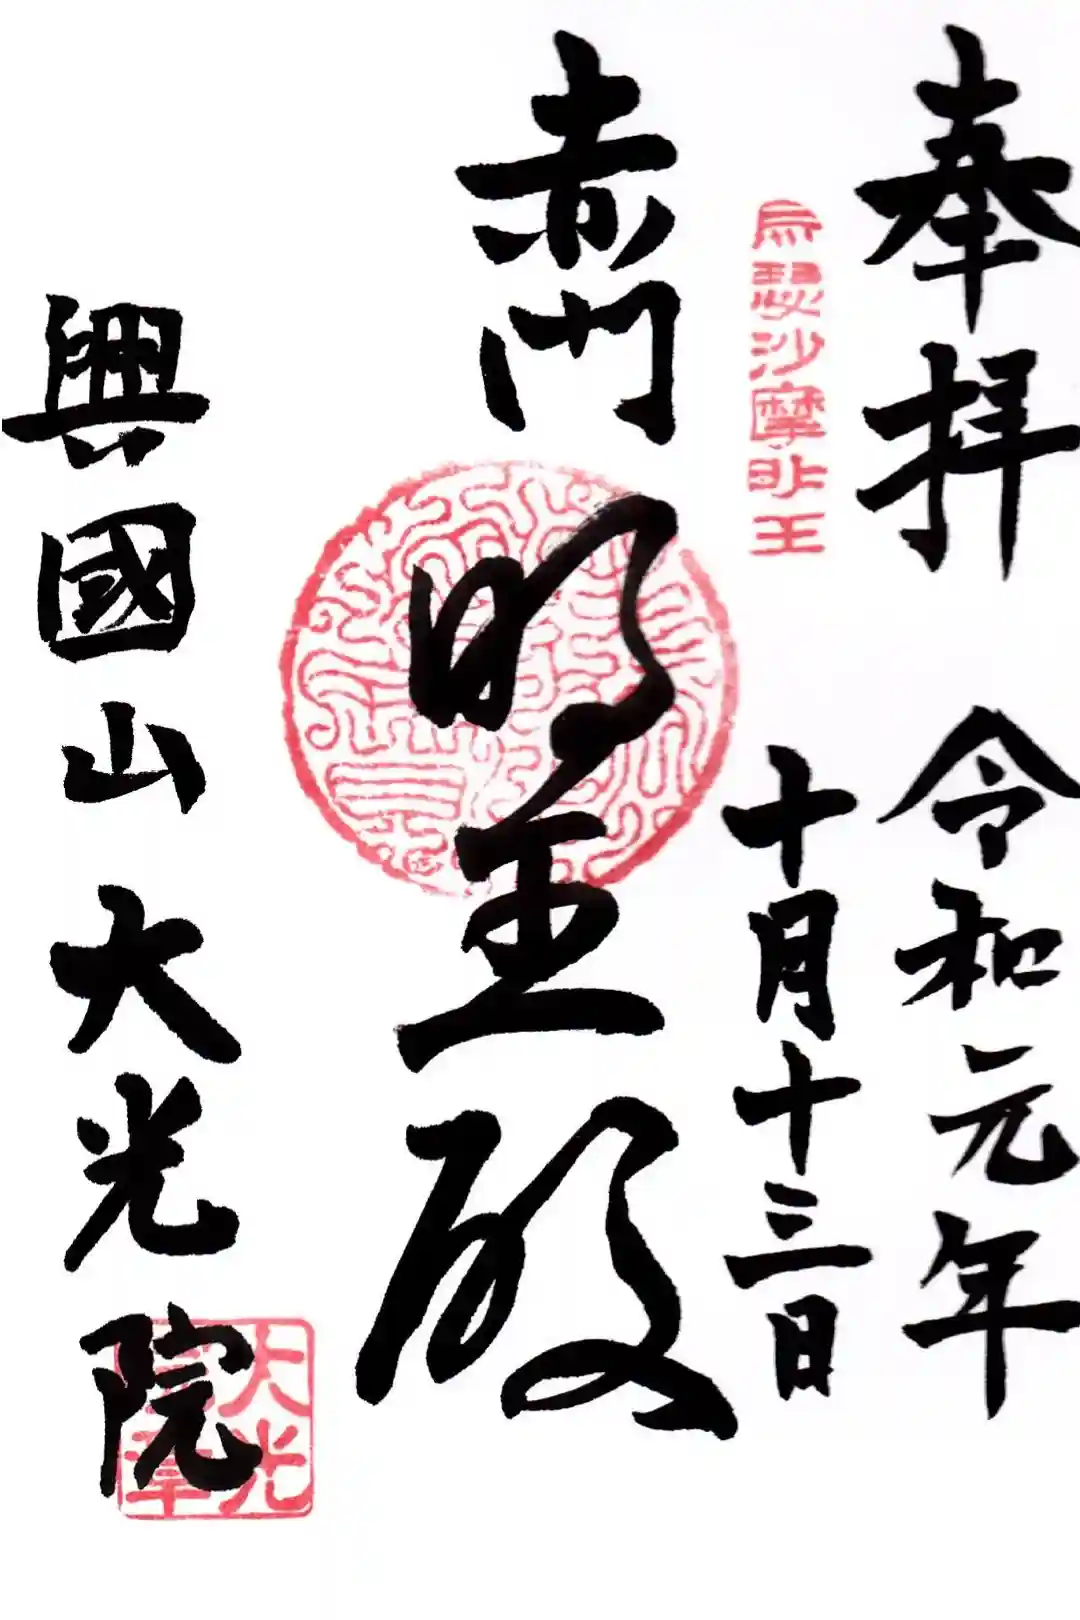 奉拝
令和元年
十月十三日
烏瑟沙摩明王
赤門
明王殿
興國山
大光院
大光
章